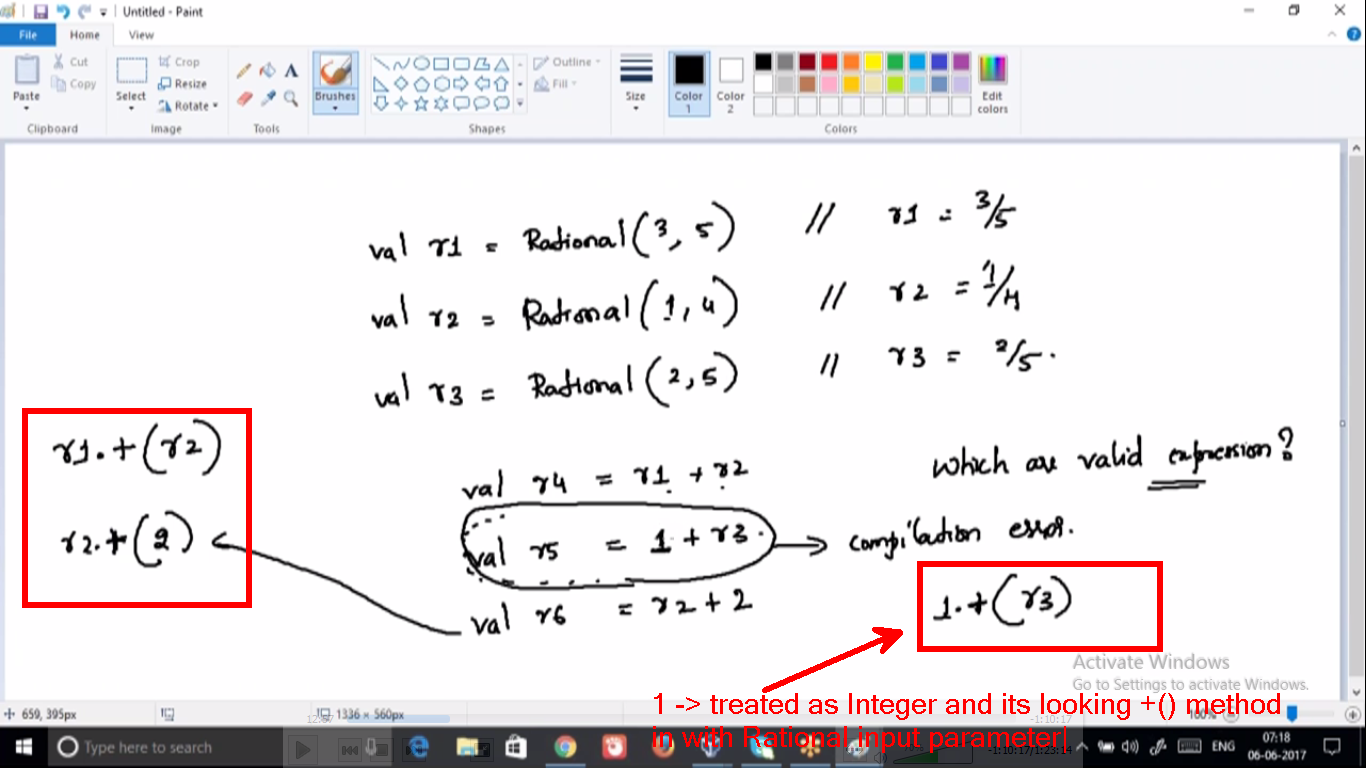 Untitled - Paint
File
Home
View
Paste
Cut
Copy
Clipboard
Select
Crop
Resize
Rotate
Image
Tools
Brushes
Shapes
Outline
Fill
Size
Color 1
Color 2
Edit colors
Colors
val r1 = Rational(3, 5) // r1 = 3/5
val r2 = Rational(1, 4) // r2 = 1/4
val r3 = Rational(2, 5) // r3 = 2/5.
r1.+(r2)
r2.+(2)
which are valid expression?
val r4 = r1 + r2
val r5 = 1 + r3.
compilation error.
val r6 = r2 + 2
1.+(r3)
Activate Windows
Go to Settings to activate Windows.
1 -> treated as Integer and its looking +() method
in with Rational input parameter!
659, 395px
1336 × 560px
100%
-1:10:17
Type here to search
-1:10:17/1:23:14
ENG
07:18
06-06-2017